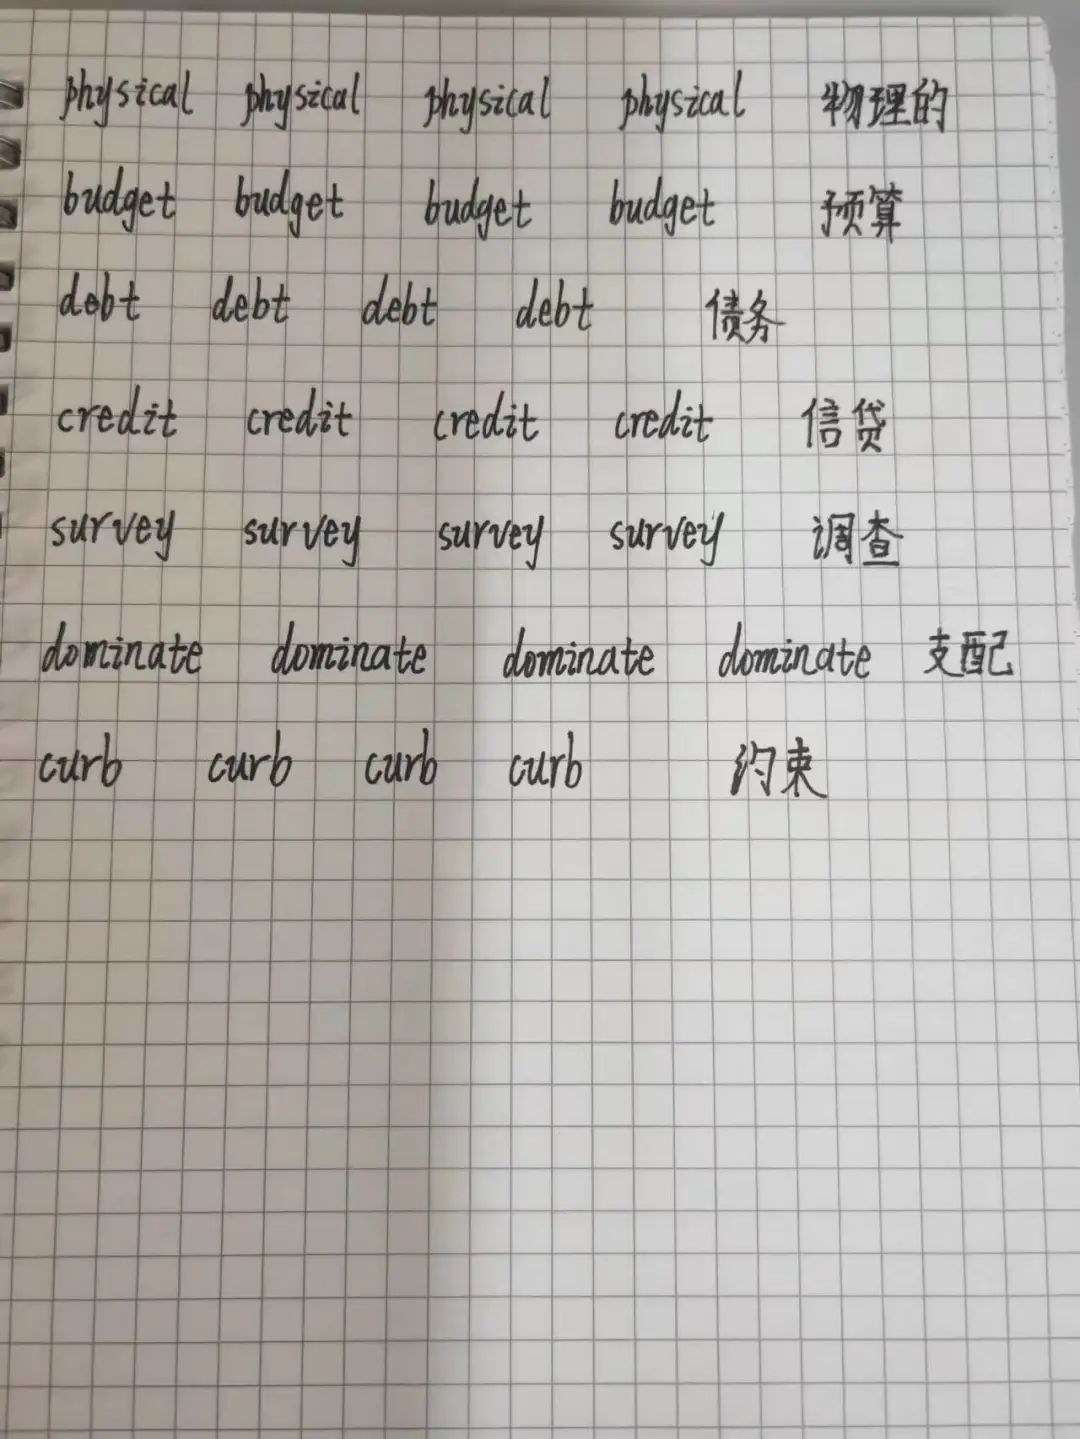 physical physical physical physical 物理的
budget budget budget budget 预算
debt debt debt debt 债务
credit credit credit credit 信贷
survey survey survey survey 调查
dominate dominate dominate dominate 支配
curb curb curb curb 约束